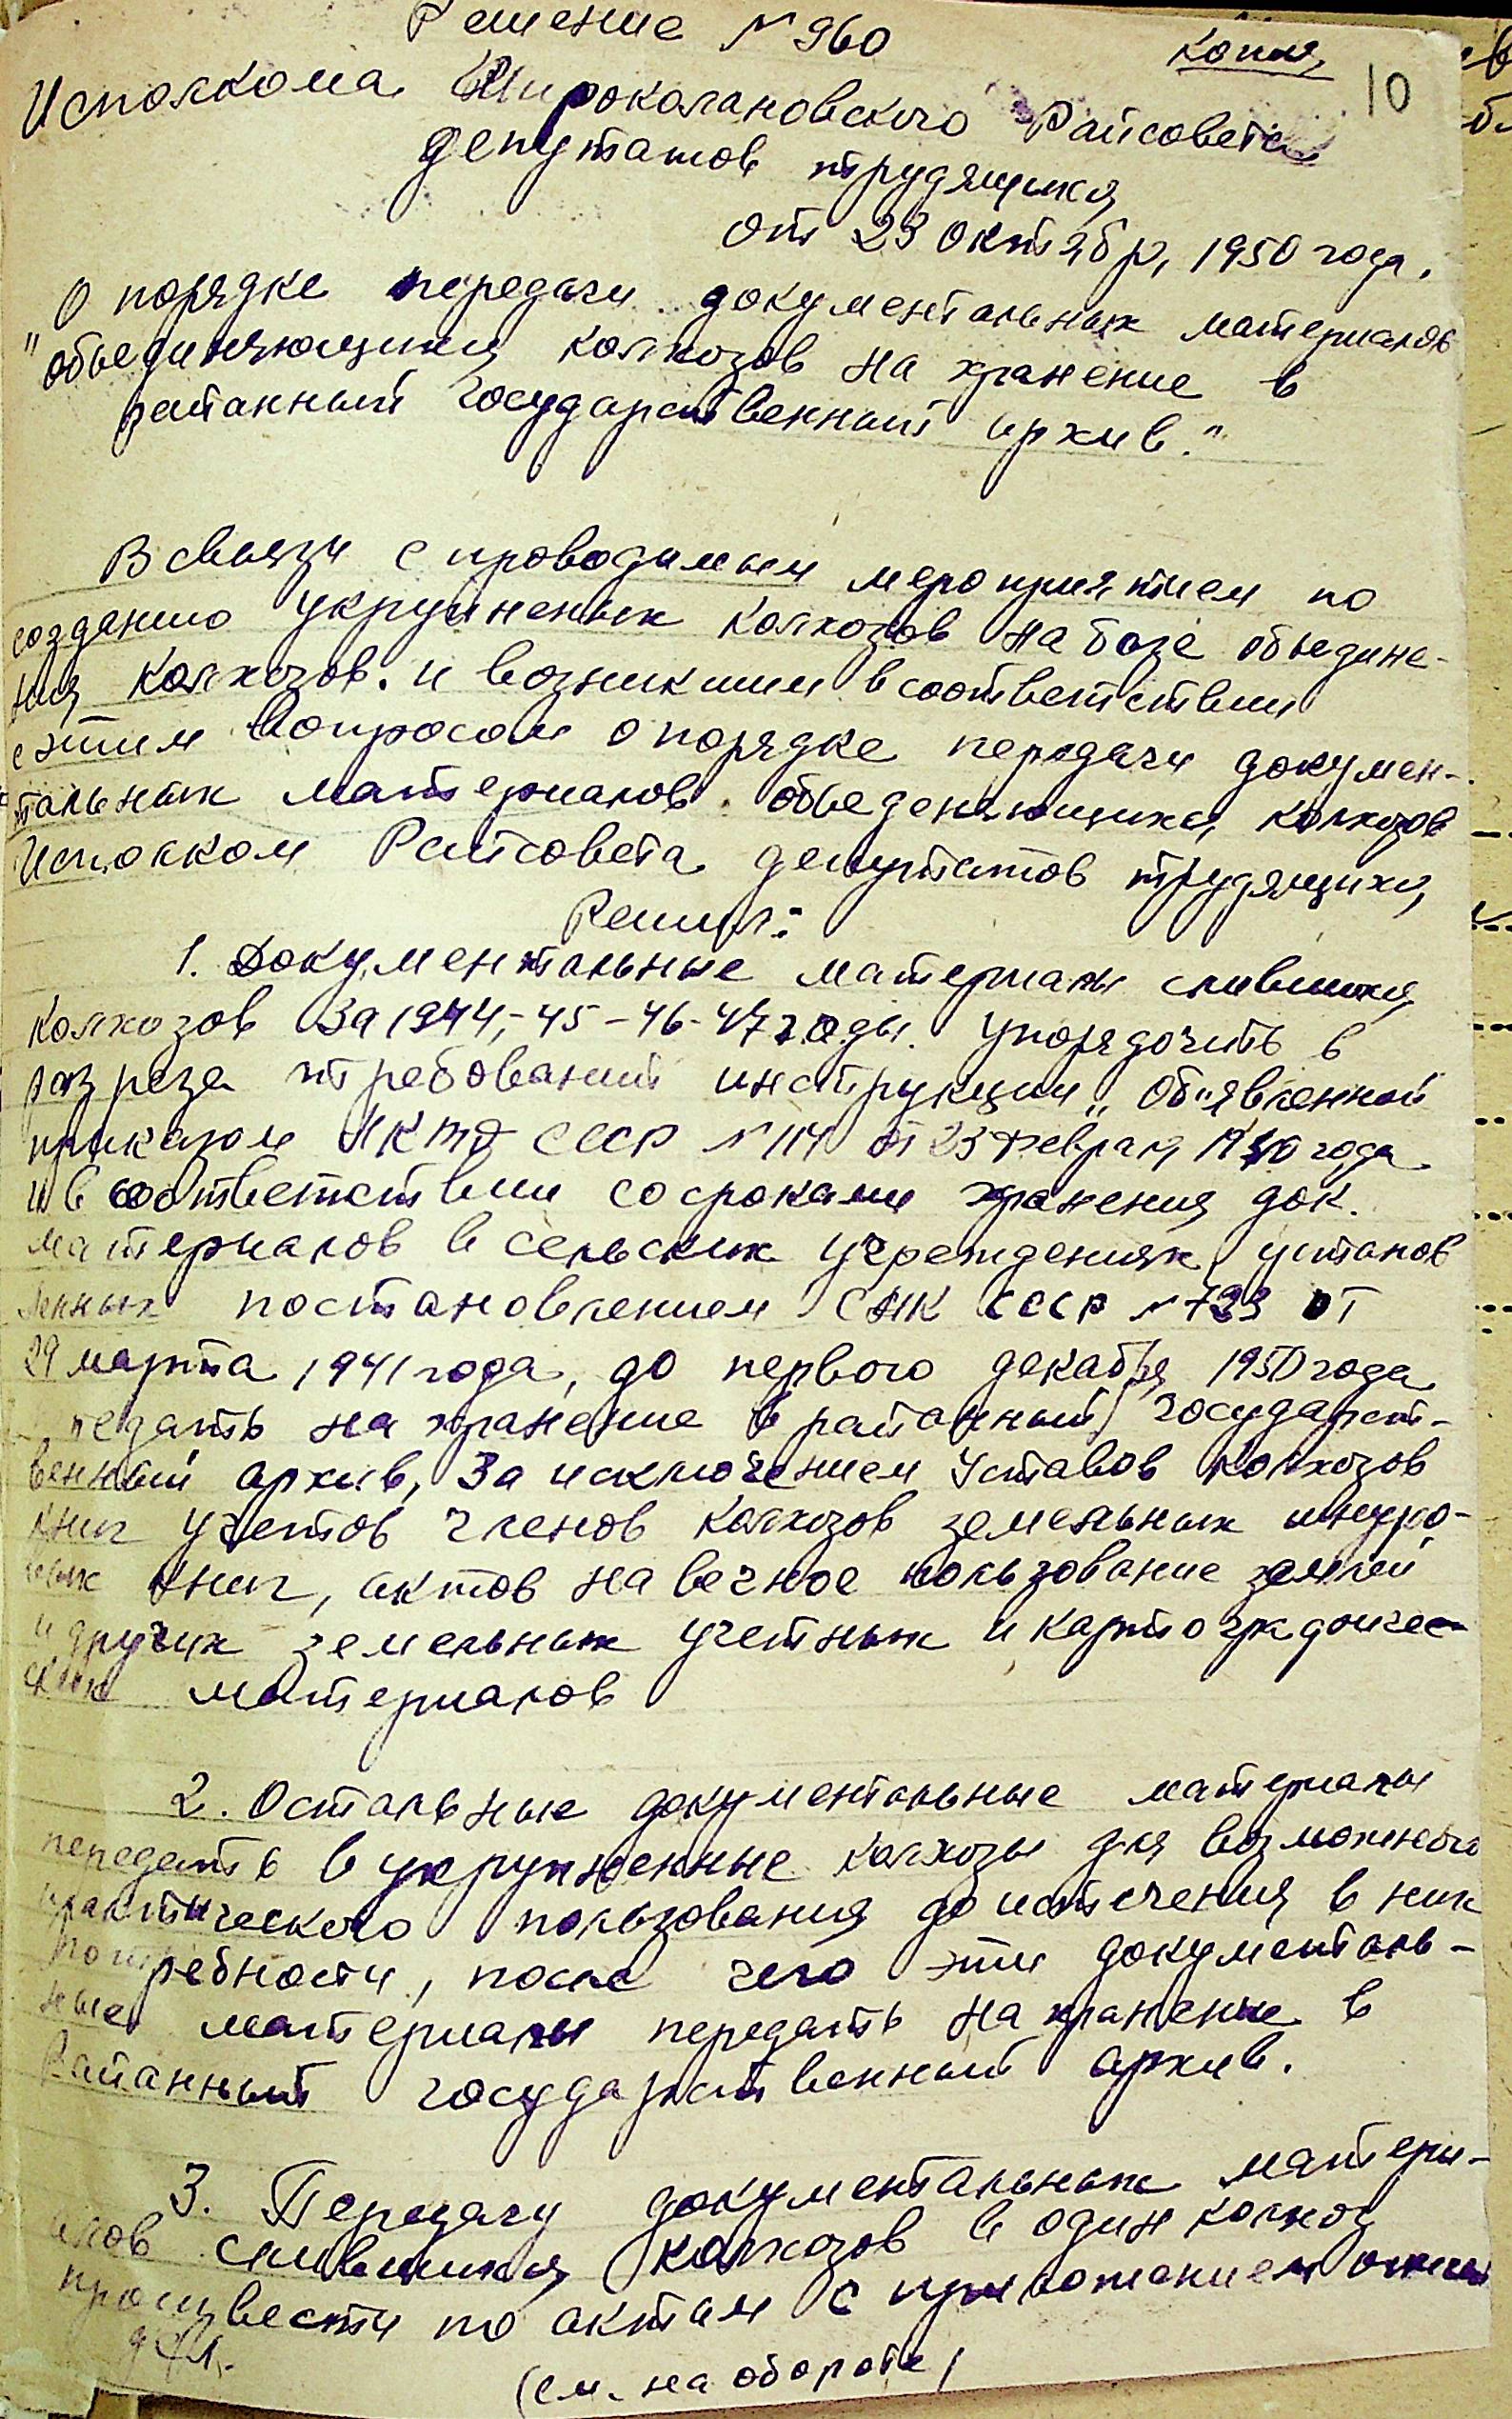 Решение № 960
Копия
10
Исполкома Широколановского Райсовета
депутатов трудящихся
от 23 октября 1950 года.
"О порядке передачи документальных материалов
объединяющихся колхозов на хранение в
районный государственный архив."
В связи с проводимым мероприятием по
созданию укрупненых колхозов на базе объедине-
ния колхозов. и возникшим в соответствии
с этим вопросом о порядке передачи докумен-
тальных материалов объеденяющихся колхозов
Исполком Райсовета депутатов трудящихся
Решил:
1. Документальные материалы слившихся
колхозов За 1944,-45-46-47 годы. упорядочить в
разрезе требований инструкции, Об"явленной
приказом СССР № 114 от 23 февраля 1940 года
и в соответствии со сроками хранения док.
материалов в сельских учреждениях, установ
ленных постановлением СНК СССР № 723 от
29 марта 1941 года, до первого декабря 1950 года
передать на хранение в районный государст-
венный архив, За исключением Уставов колхозов
книг учетов членов колхозов земельных шнуро-
вых книг, актов на вечное пользование землей
и других земельных учетных и картографичес-
ких материалов
2. Остальные документальные материалы
передать в укрупненные колхозы для возможного
практического пользования до истечения в них
потребности, после чего эти документаль-
ные материалы передать на хранение в
Районный государственный архив.
3. Передачу документальных матери-
алов слившихся колхозов в один колхоз
произвести по актам с приложением описей
дел.
(см. на обороте)